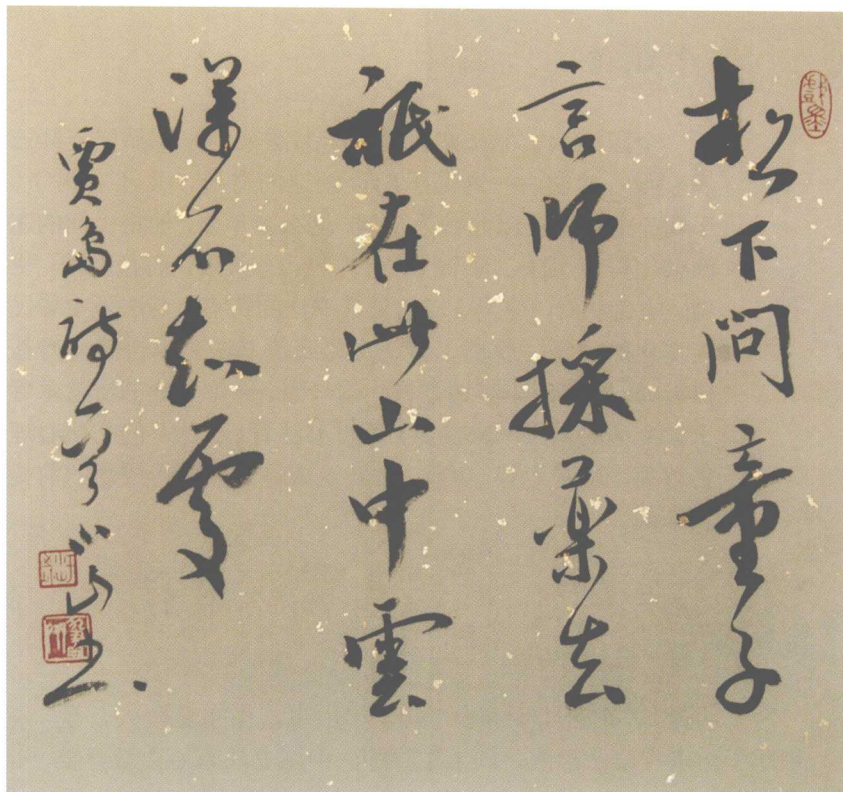 松下問童子
言師採藥去
祇在此山中雲
深不知處
賈島詩一首小山書